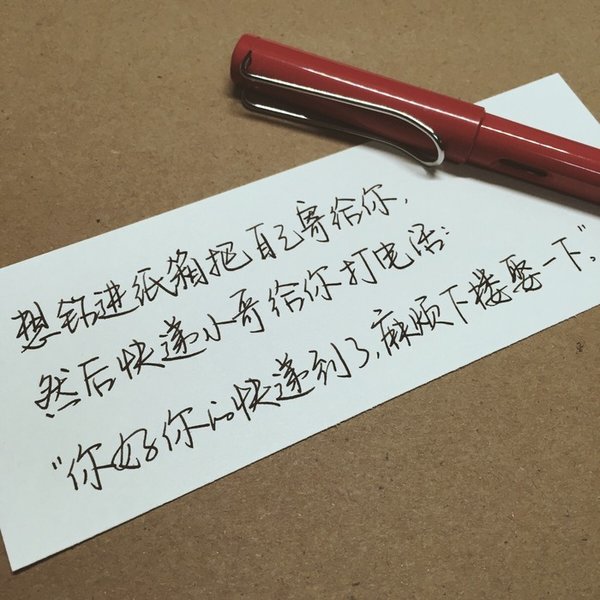 想钻进纸箱把自己寄给你，
然后快递小哥给你打电话：
“你好你的快递到了，麻烦下楼娶一下”。